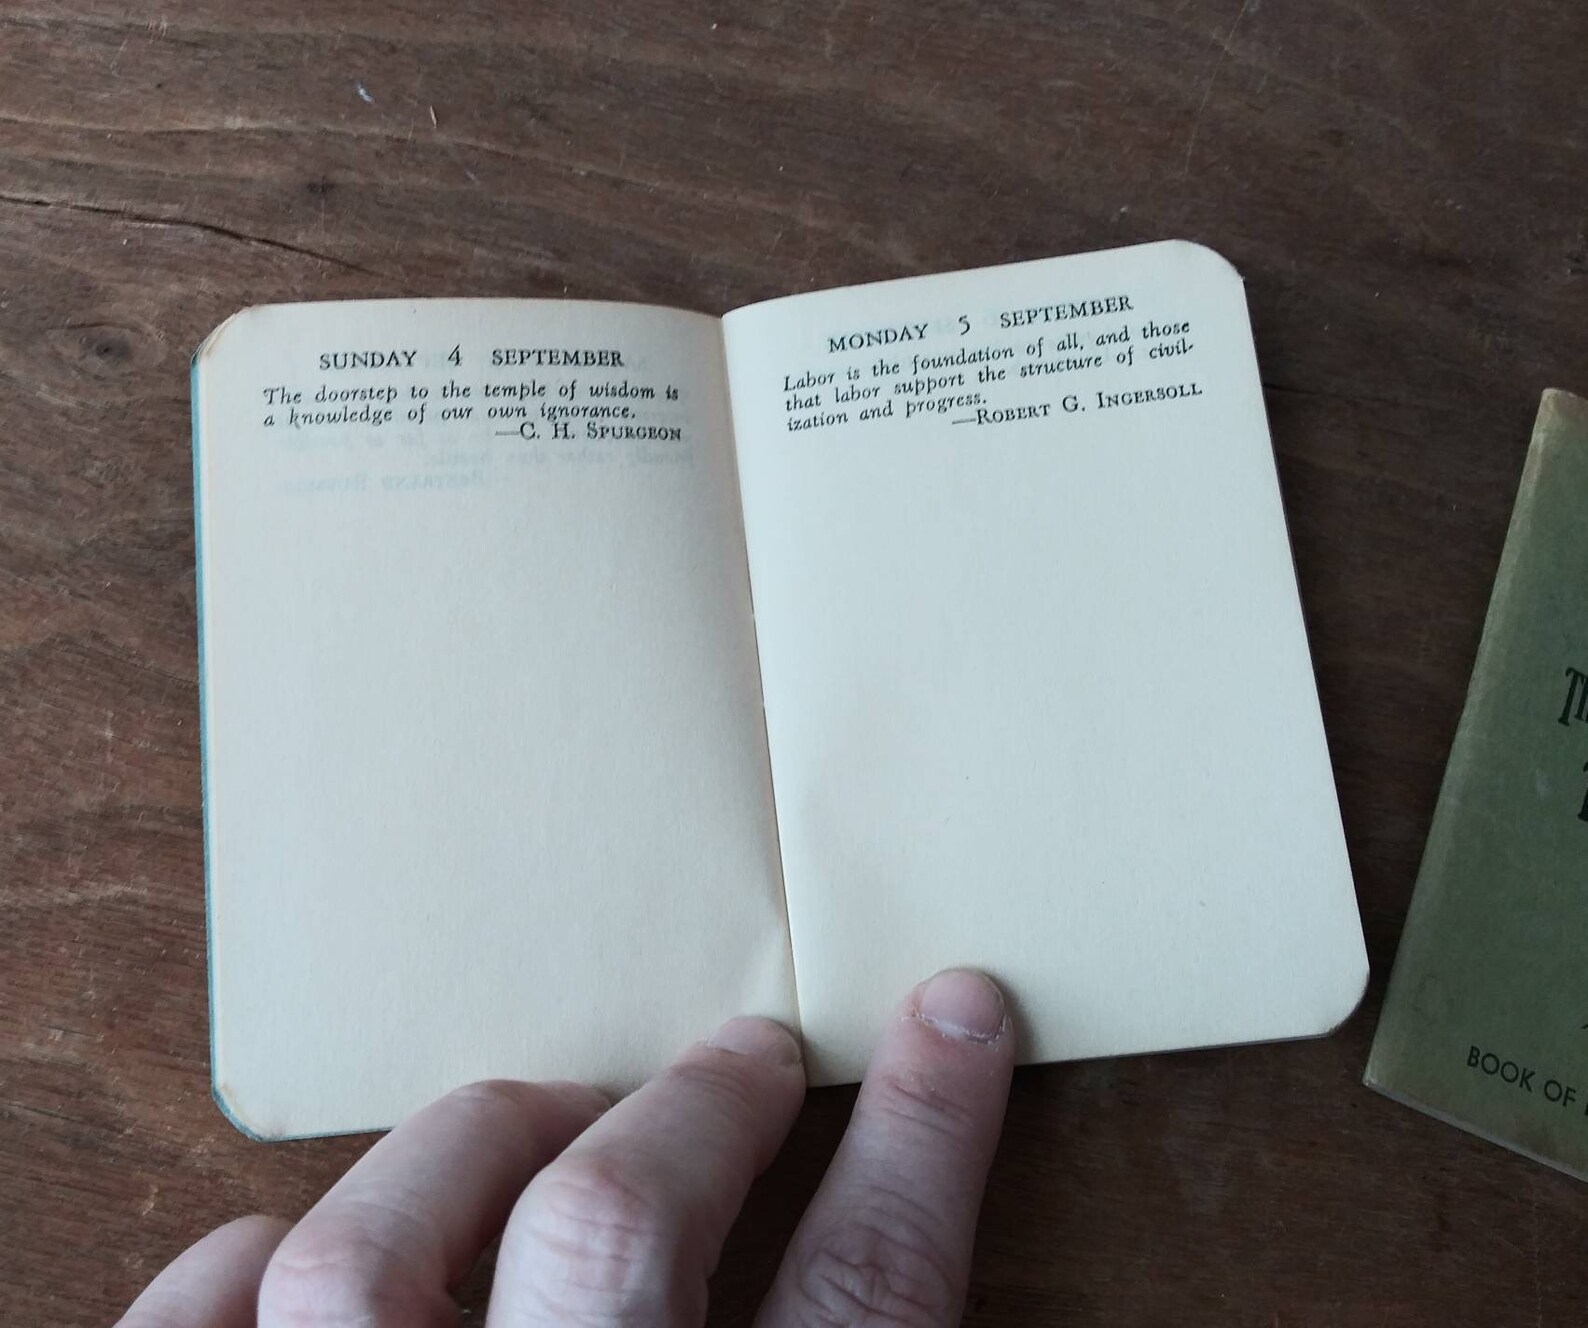 SUNDAY 4 SEPTEMBER
The doorstep to the temple of wisdom is
a knowledge of our own ignorance.
—C. H. SPURGEON
MONDAY 5 SEPTEMBER
Labor is the foundation of all, and those
that labor support the structure of civil-
ization and progress.
—ROBERT G. INGERSOLL
BOOK OF